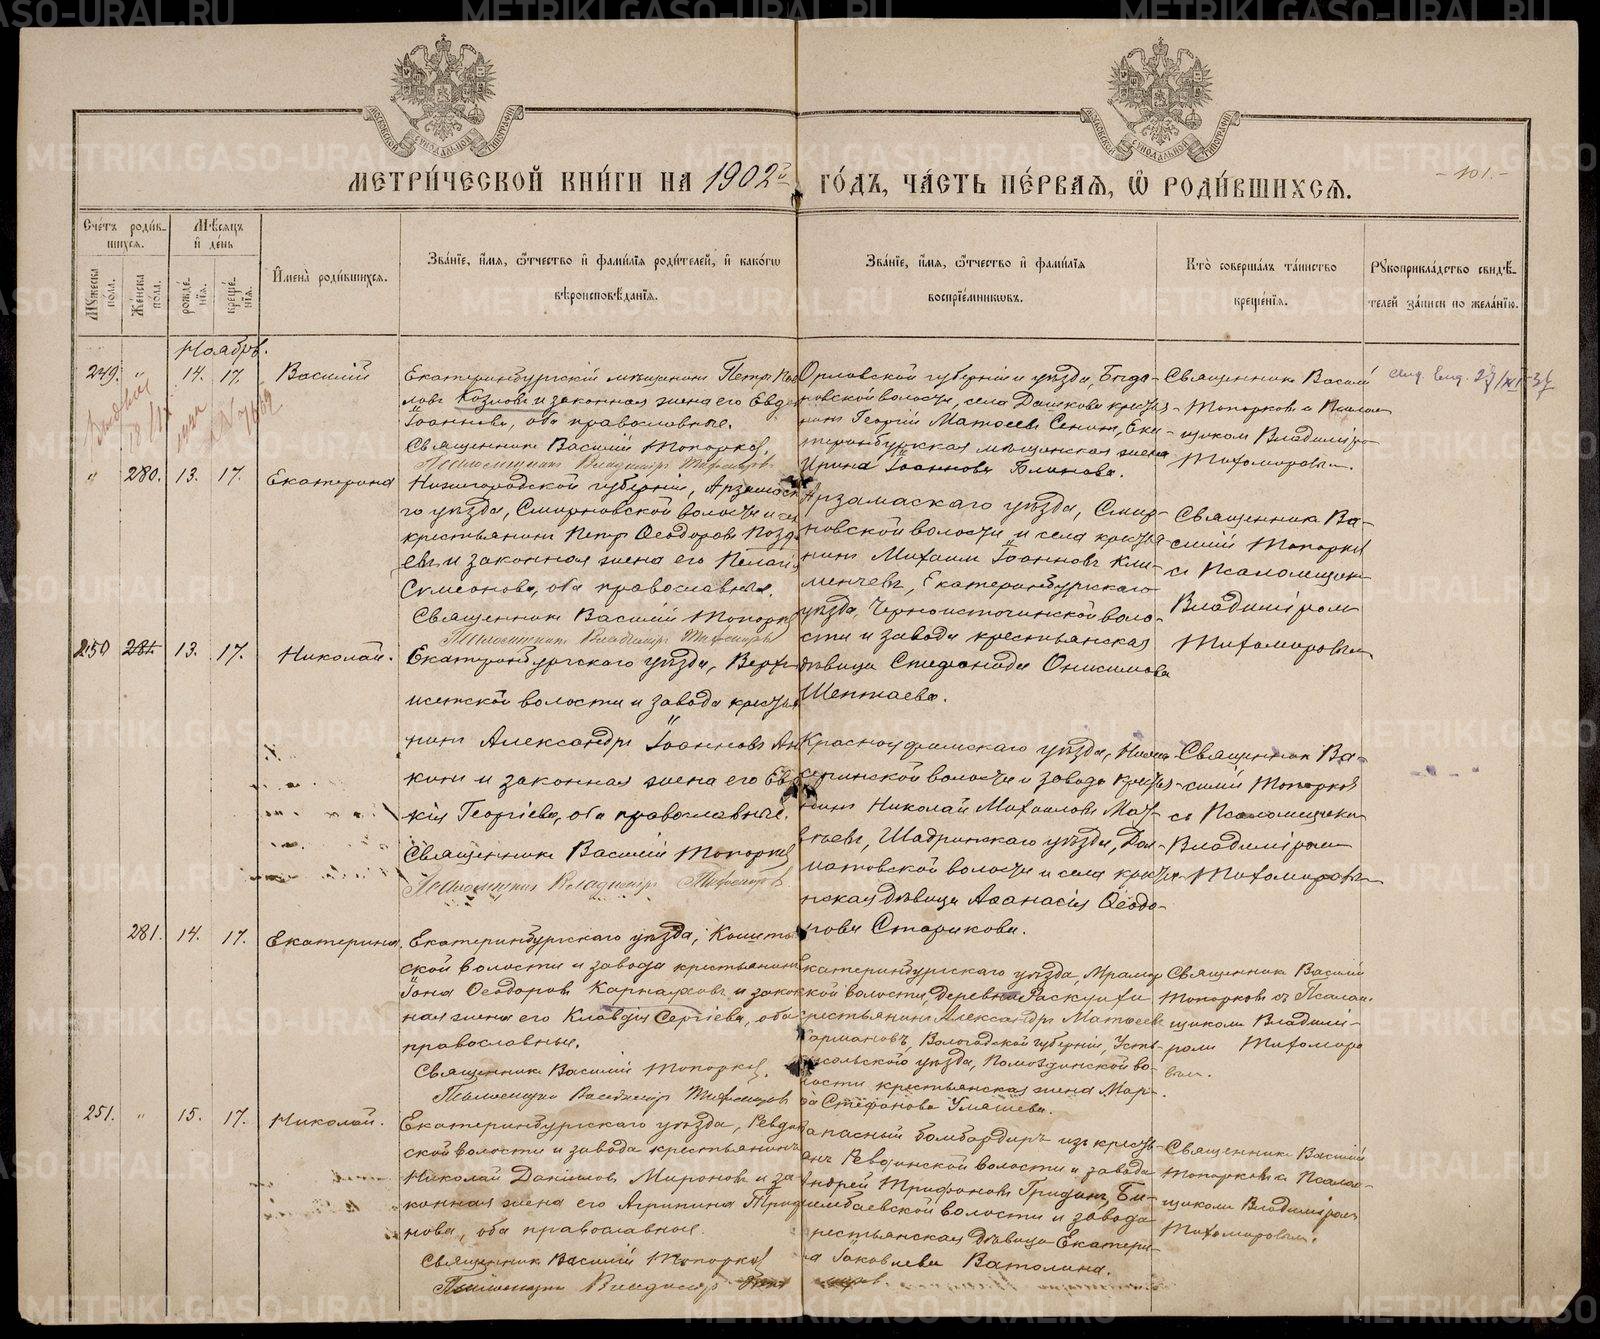 МЕТРИ́ЧЕСКОЙ КНИ́ГИ НА 1902й ГО́ДЪ, ЧА́СТЬ ПЕ́РВАѦ, Ѡ҆ РОДИ́ВШИХСѦ.
- 101. -
Сче́тъ роди́вшихсѧ.
Мѹжеска пола.
Же́нска по́ла.
Мѣсѧцъ и҆ де́нь
рожде́нїѧ.
креще́нїѧ.
И҆мена̀ роди́вшихсѧ.
Зва́нїе, и҆́мѧ, ѻ҆́тчество и҆ фамилїѧ роди́телей, и҆ како́гѡ
вѣроисповѣ́данїѧ.
Зва́нїе, и҆́мѧ, ѻ҆́тчество и҆ фами́лїѧ
воспрїе́мниковъ.
Кто̀ соверша́лъ та́инство
креще́нїѧ.
Рѹкоприкла́дство свидѣ́телей за́писи по жела́нїю.
Ноябрь.
249. " 14. 17. Василій
Екатеринбургскій мѣщанинъ Петръ
Козловъ и законная жена его
Іоаннова, оба православные.
Священникъ Василій Топорковъ.
Псаломщикъ Владиміръ Тихомировъ
Орловской губерніи и уѣзда,
волости, села
Георгій Матвеевъ Сенинъ, Ека-
теринбургская мѣщанская жена
Ирина Іоаннова Блинова.
Священникъ Василій
Топорковъ с Псалом-
щиком Владиміром
Тихомировым.
" 280. 13. 17. Екатерина
Нижегородской губерніи, Арзамаска-
го уѣзда, Смирновской волости и села
крестьянинъ Петр Ѳеодоровъ
и законная жена его Пелагія
Симеонова, оба православные.
Священникъ Василій Топорков
Псаломщикъ Владиміръ Тихомиров
Арзамаскаго уѣзда, Смир-
новской волости и села крестья-
нинъ Михаил Іоанновъ Кли-
менчевъ, Екатеринбургскаго
уѣзда, Черноисточинской воло-
сти и завода крестьянская
дѣвица Стефанида Онисимова
Шептаева.
Священникъ Ва-
силій Топорков
съ Псаломщиком
Владиміром
Тихомировым
250 281. 13. 17. Николай.
Екатеринбургскаго уѣзда, Верх-
исетской волости и завода крестья-
нинъ Александръ Іоанновъ Ан-
кинъ и законная жена его Евдо-
кія Георгіева, оба православные.
Священникъ Василій Топорков
Псаломщикъ Владиміръ Тихомировъ.
Красноуфимскаго уѣзда, Нижне-
сергинской волости и завода крестья-
нинъ Николай Михаиловъ Мат-
вѣевъ, Шадринскаго уѣзда, Дал-
матовской волости и села крестья-
нская дѣвица Аѳанасія Ѳеодо-
рова Старикова.
Священникъ Ва-
силій Топорков
съ Псаломщиком
Владиміром
Тихомировым
281. 14. 17. Екатерина.
Екатеринбургскаго уѣзда,
ской волости и завода крестьянинъ
Іона Ѳеодоровъ Карнауховъ и закон-
ная жена его Клавдія Сергіева, оба
православные.
Священникъ Василій Топорков.
Псаломщикъ Владиміръ Тихомировъ
Екатеринбургскаго уѣзда, Мрамор-
ской волости, деревни Раскуихи
крестьянинъ Александръ Матвеевъ
Кармановъ, Вологодской губерніи, Усть-
сысольскаго уѣзда, Помоздинской во-
лости крестьянская жена Мар-
ѳа Стефанова Уляшева.
Священникъ Василій
Топорковъ съ Псалом-
щиком Владимі-
ром Тихомиро-
вым.
251. " 15. 17. Николай.
Екатеринбургскаго уѣзда, Ревдин-
ской волости и завода крестьянинъ
Николай Даніилов Мироновъ и за-
конная жена его Агрипина Триф-
нова, оба православные.
Священникъ Василій Топорков
Псаломщикъ Владиміръ Тихомиров
Запасный бомбардиръ изъ кресть-
янъ Ревдинской волости и завода
Андрей Трифоновъ Гридинъ, Би-
лимбаевской волости и завода
крестьянская дѣвица Екатери-
на Іаковлева Ватолина.
Священникъ Василій
Топорковъ с Псалом-
щиком Владиміром
Тихомировым.
METRIKI.GASO-URAL.RU